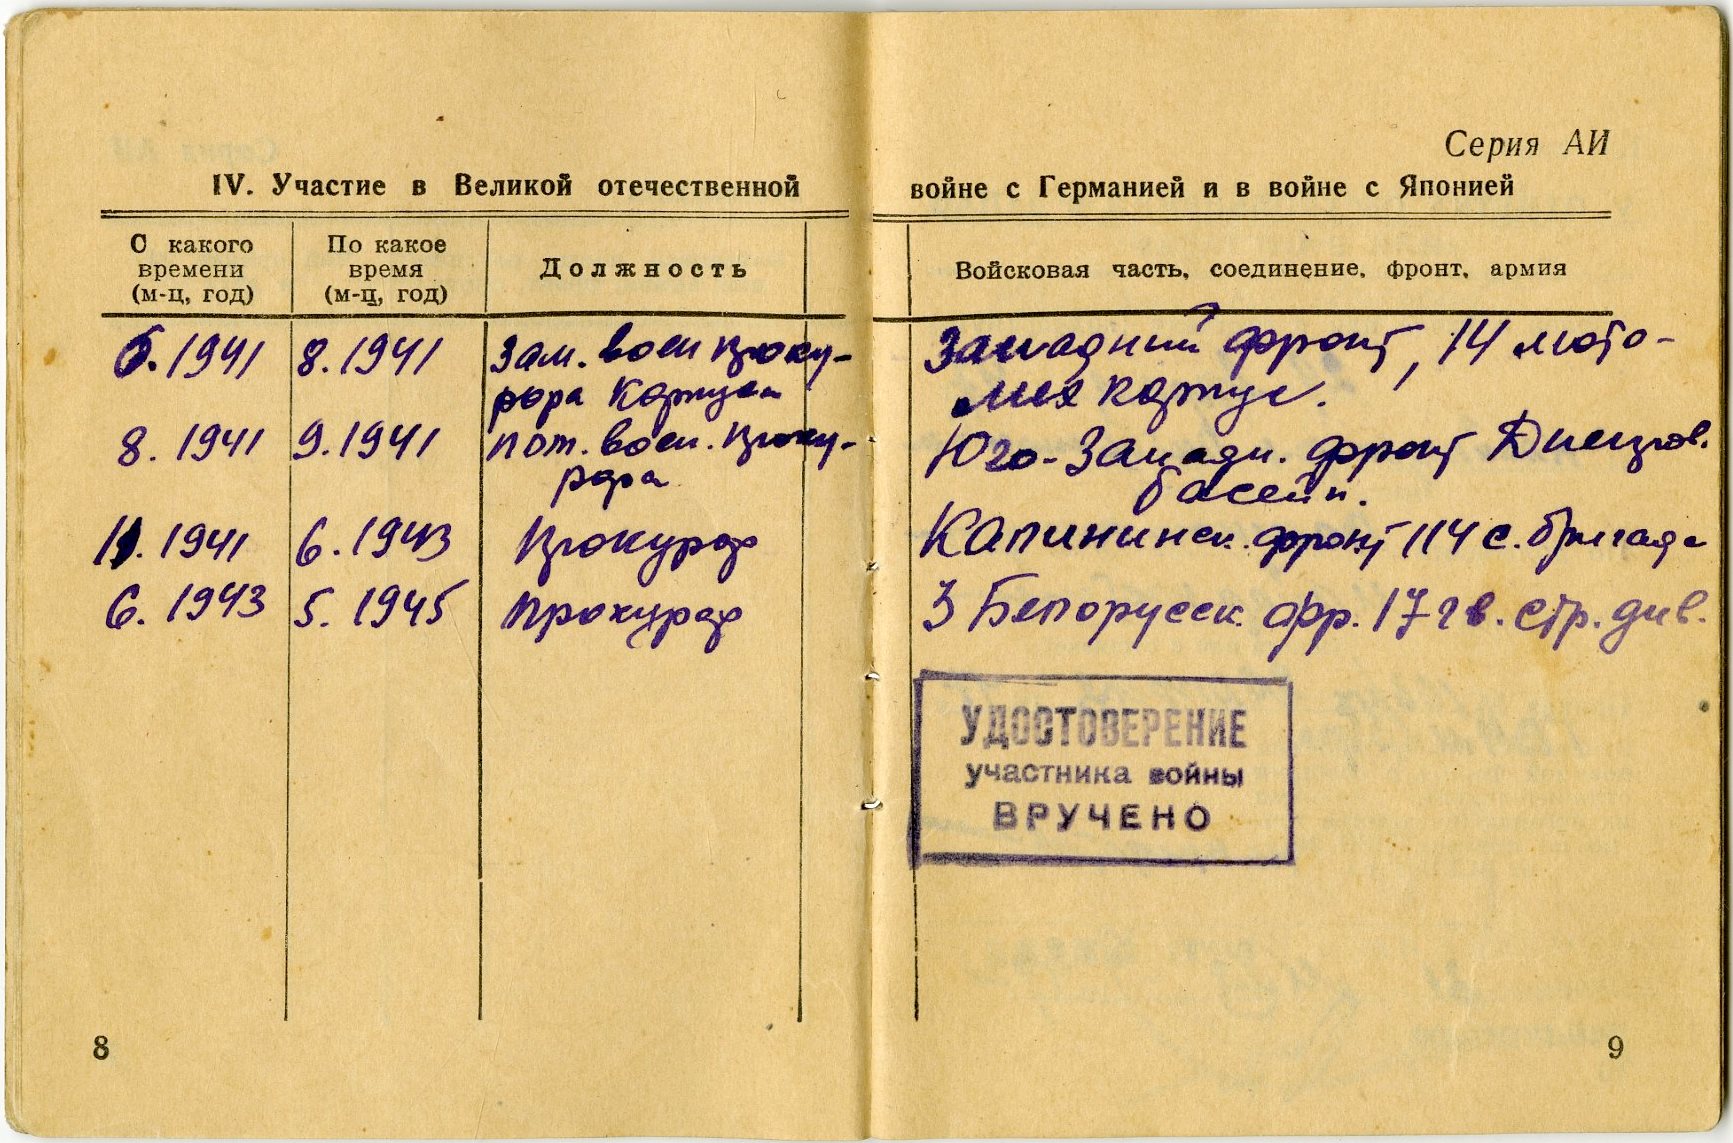 Серия АИ
IV. Участие в Великой отечественной войне с Германией и в войне с Японией
С какого времени (м-ц, год)
По какое время (м-ц, год)
Должность
Войсковая часть, соединение, фронт, армия
6.1941 8.1941 Зам. воен проку- Западный фронт, 14
рора корпуса корпус.
8.1941 9.1941 пом. воен. проку- Юго-Западн. фронт Днепров.
рора басейн.
11.1941 6.1943 Прокурор Калининск. фронт 114 с. бригада
6.1943 5.1945 Прокурор 3 Белорусск. фр. 17 гв. стр. див.
УДОСТОВЕРЕНИЕ
участника войны
ВРУЧЕНО
8
9